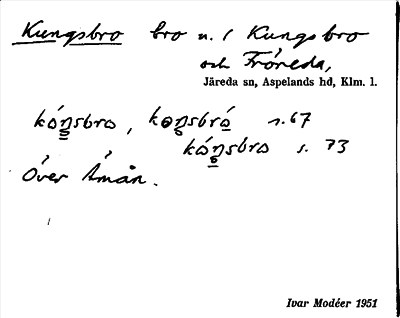 Kungsbro bro n. / Kungsbro
och Fröreda,
Järeda sn, Aspelands hd, Klm. l.
kóŋsbro, koŋsbró s. 67
kóŋsbro s. 73
Över Åmån.
Ivar Modéer 1951